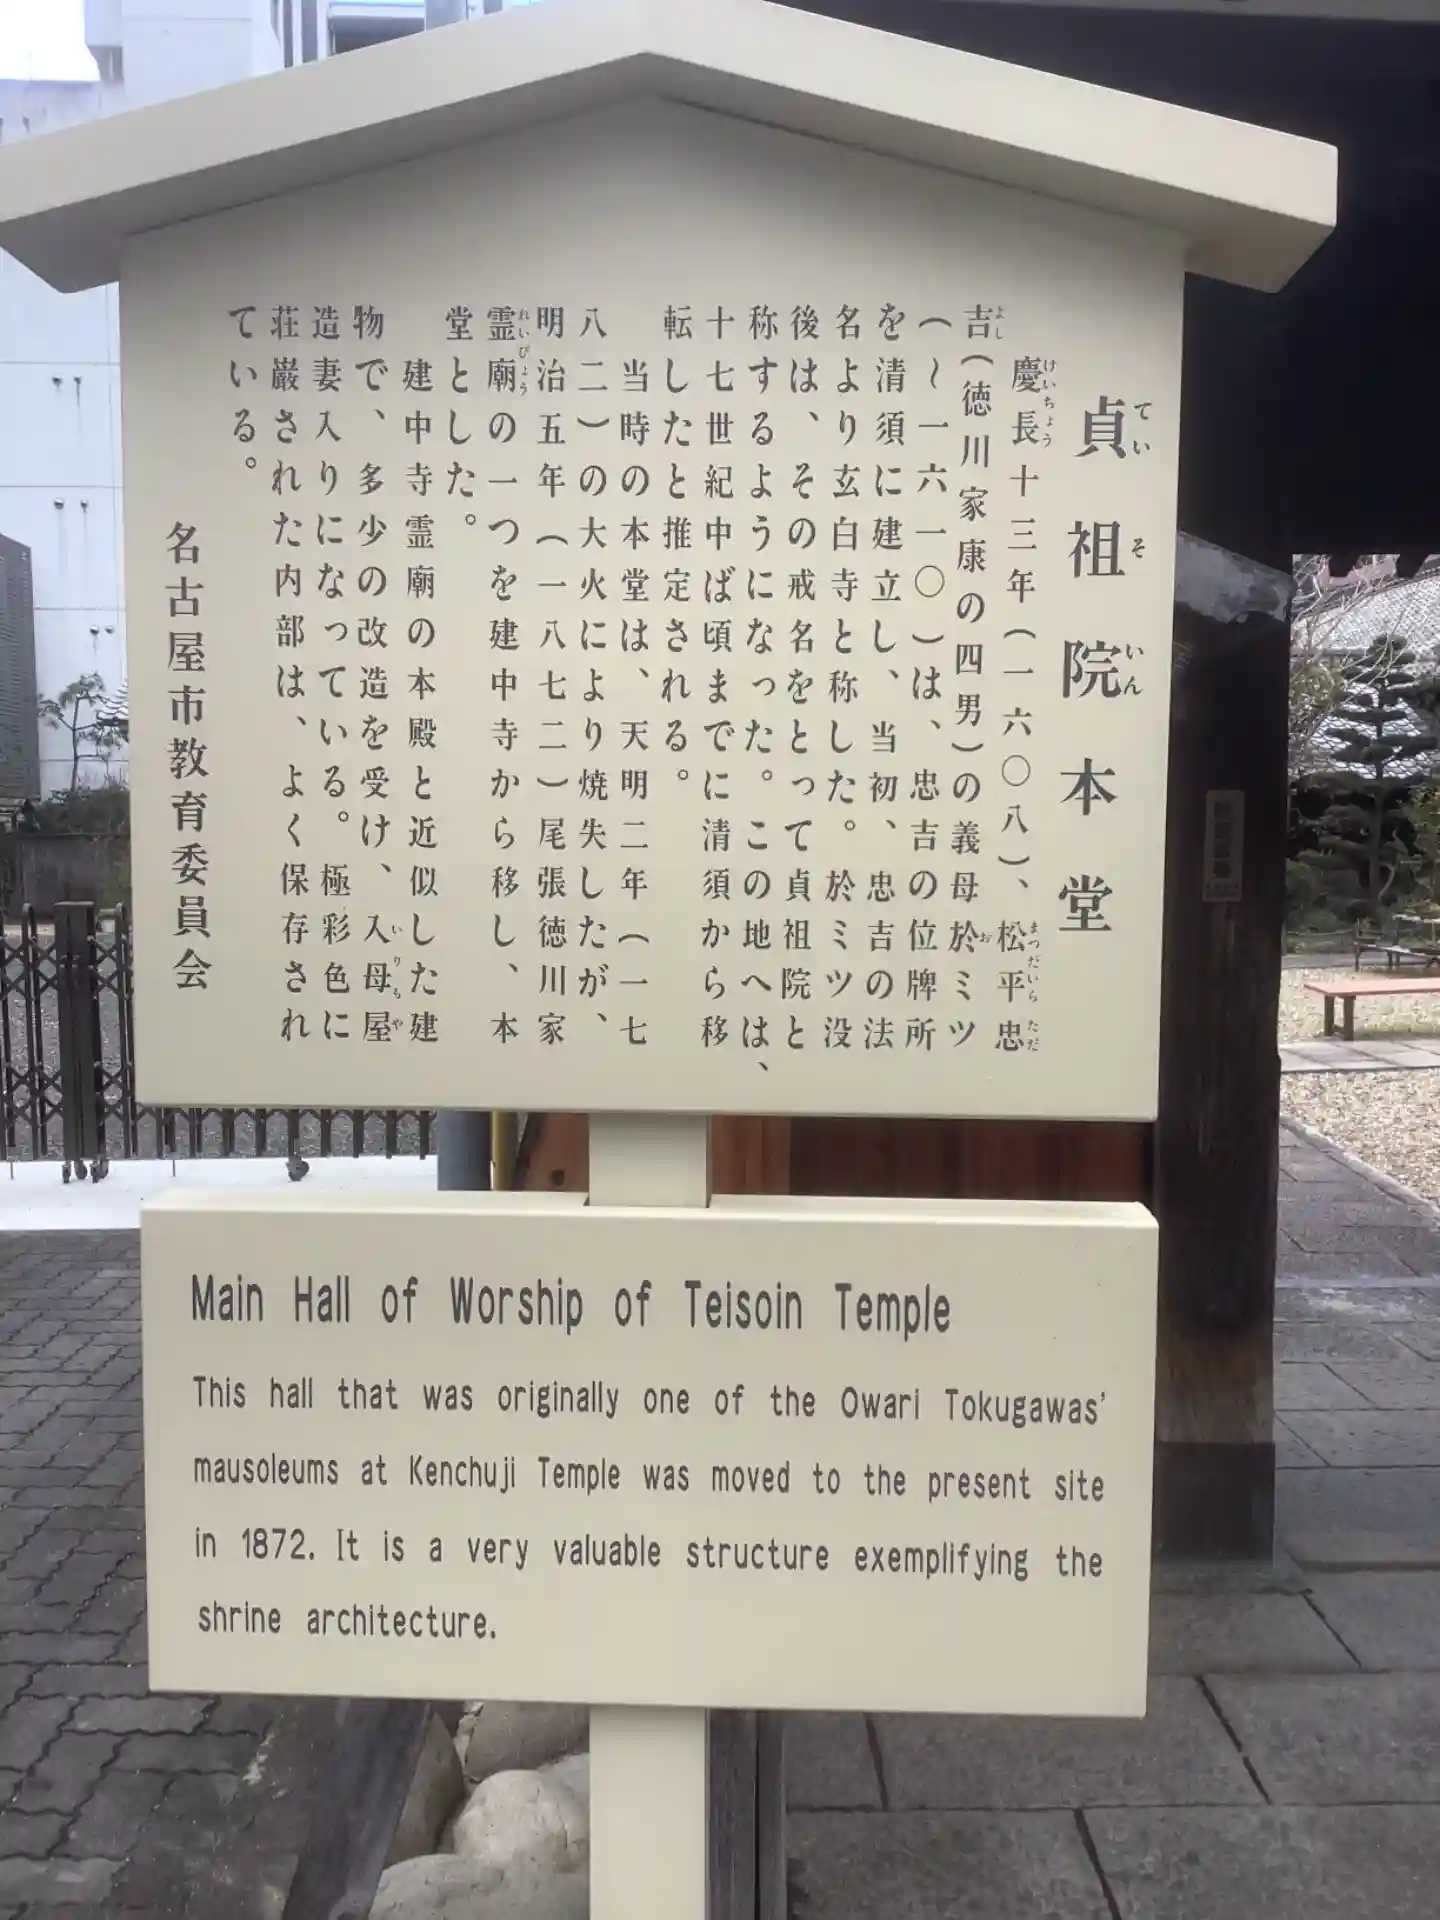 貞祖院本堂
てい そ いん
慶長十三年(一六〇八)、松平忠
けいちょう まつだいら ただ
吉(徳川家康の四男)の義母於ミツ
よし お
(〜一六一〇)は、忠吉の位牌所
を清須に建立し、当初、忠吉の法
名より玄白寺と称した。於ミツ没
後は、その戒名をとって貞祖院と
称するようになった。この地へは、
十七世紀中ば頃までに清須から移
転したと推定される。
当時の本堂は、天明二年(一七
八二)の大火により焼失したが、
明治五年(一八七二)尾張徳川家
霊廟の一つを建中寺から移し、本
れいびょう
堂とした。
建中寺霊廟の本殿と近似した建
物で、多少の改造を受け、入母屋
いりもや
造妻入りになっている。極彩色に
荘厳された内部は、よく保存され
ている。
名古屋市教育委員会
Main Hall of Worship of Teisoin Temple
This hall that was originally one of the Owari Tokugawas'
mausoleums at Kenchuji Temple was moved to the present site
in 1872. It is a very valuable structure exemplifying the
shrine architecture.